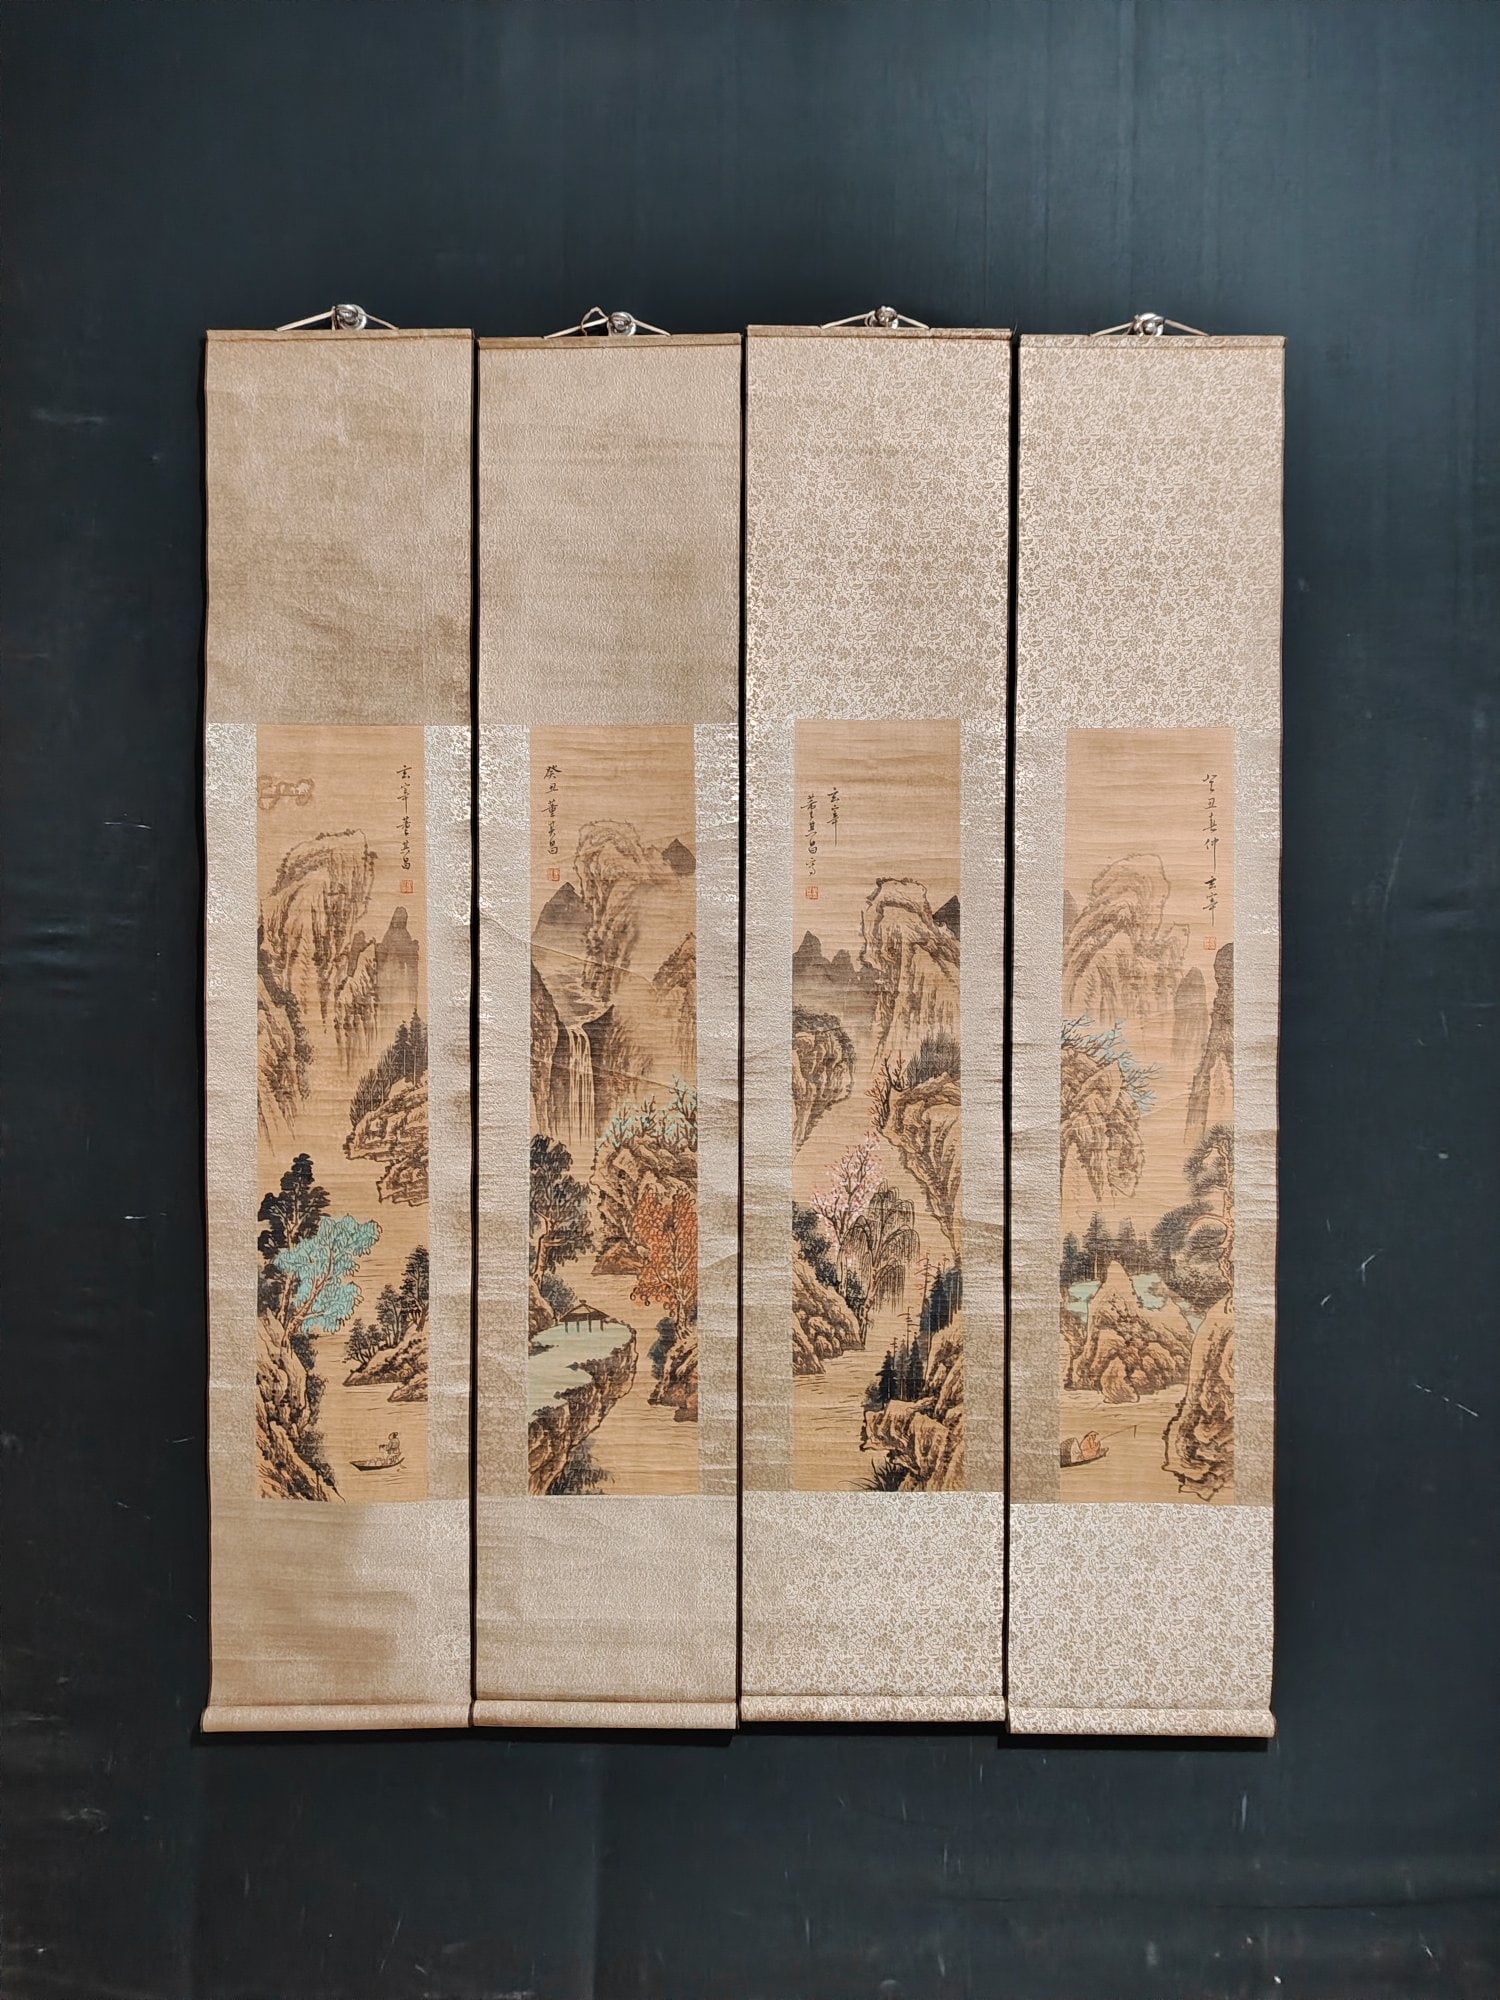 玄宰董其昌
癸丑董其昌
玄宰
董其昌写
癸丑春仲玄宰